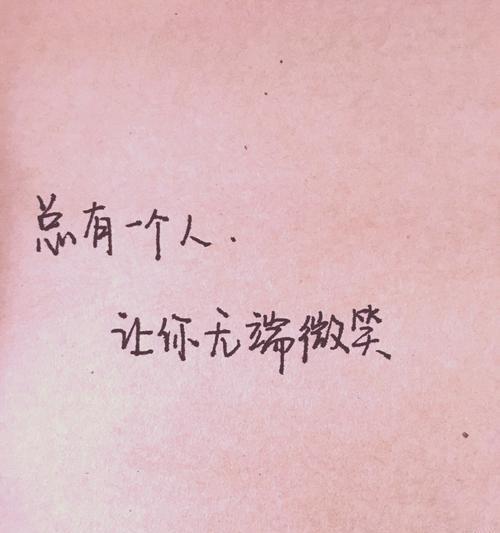 总有一个人.
让你无端微笑